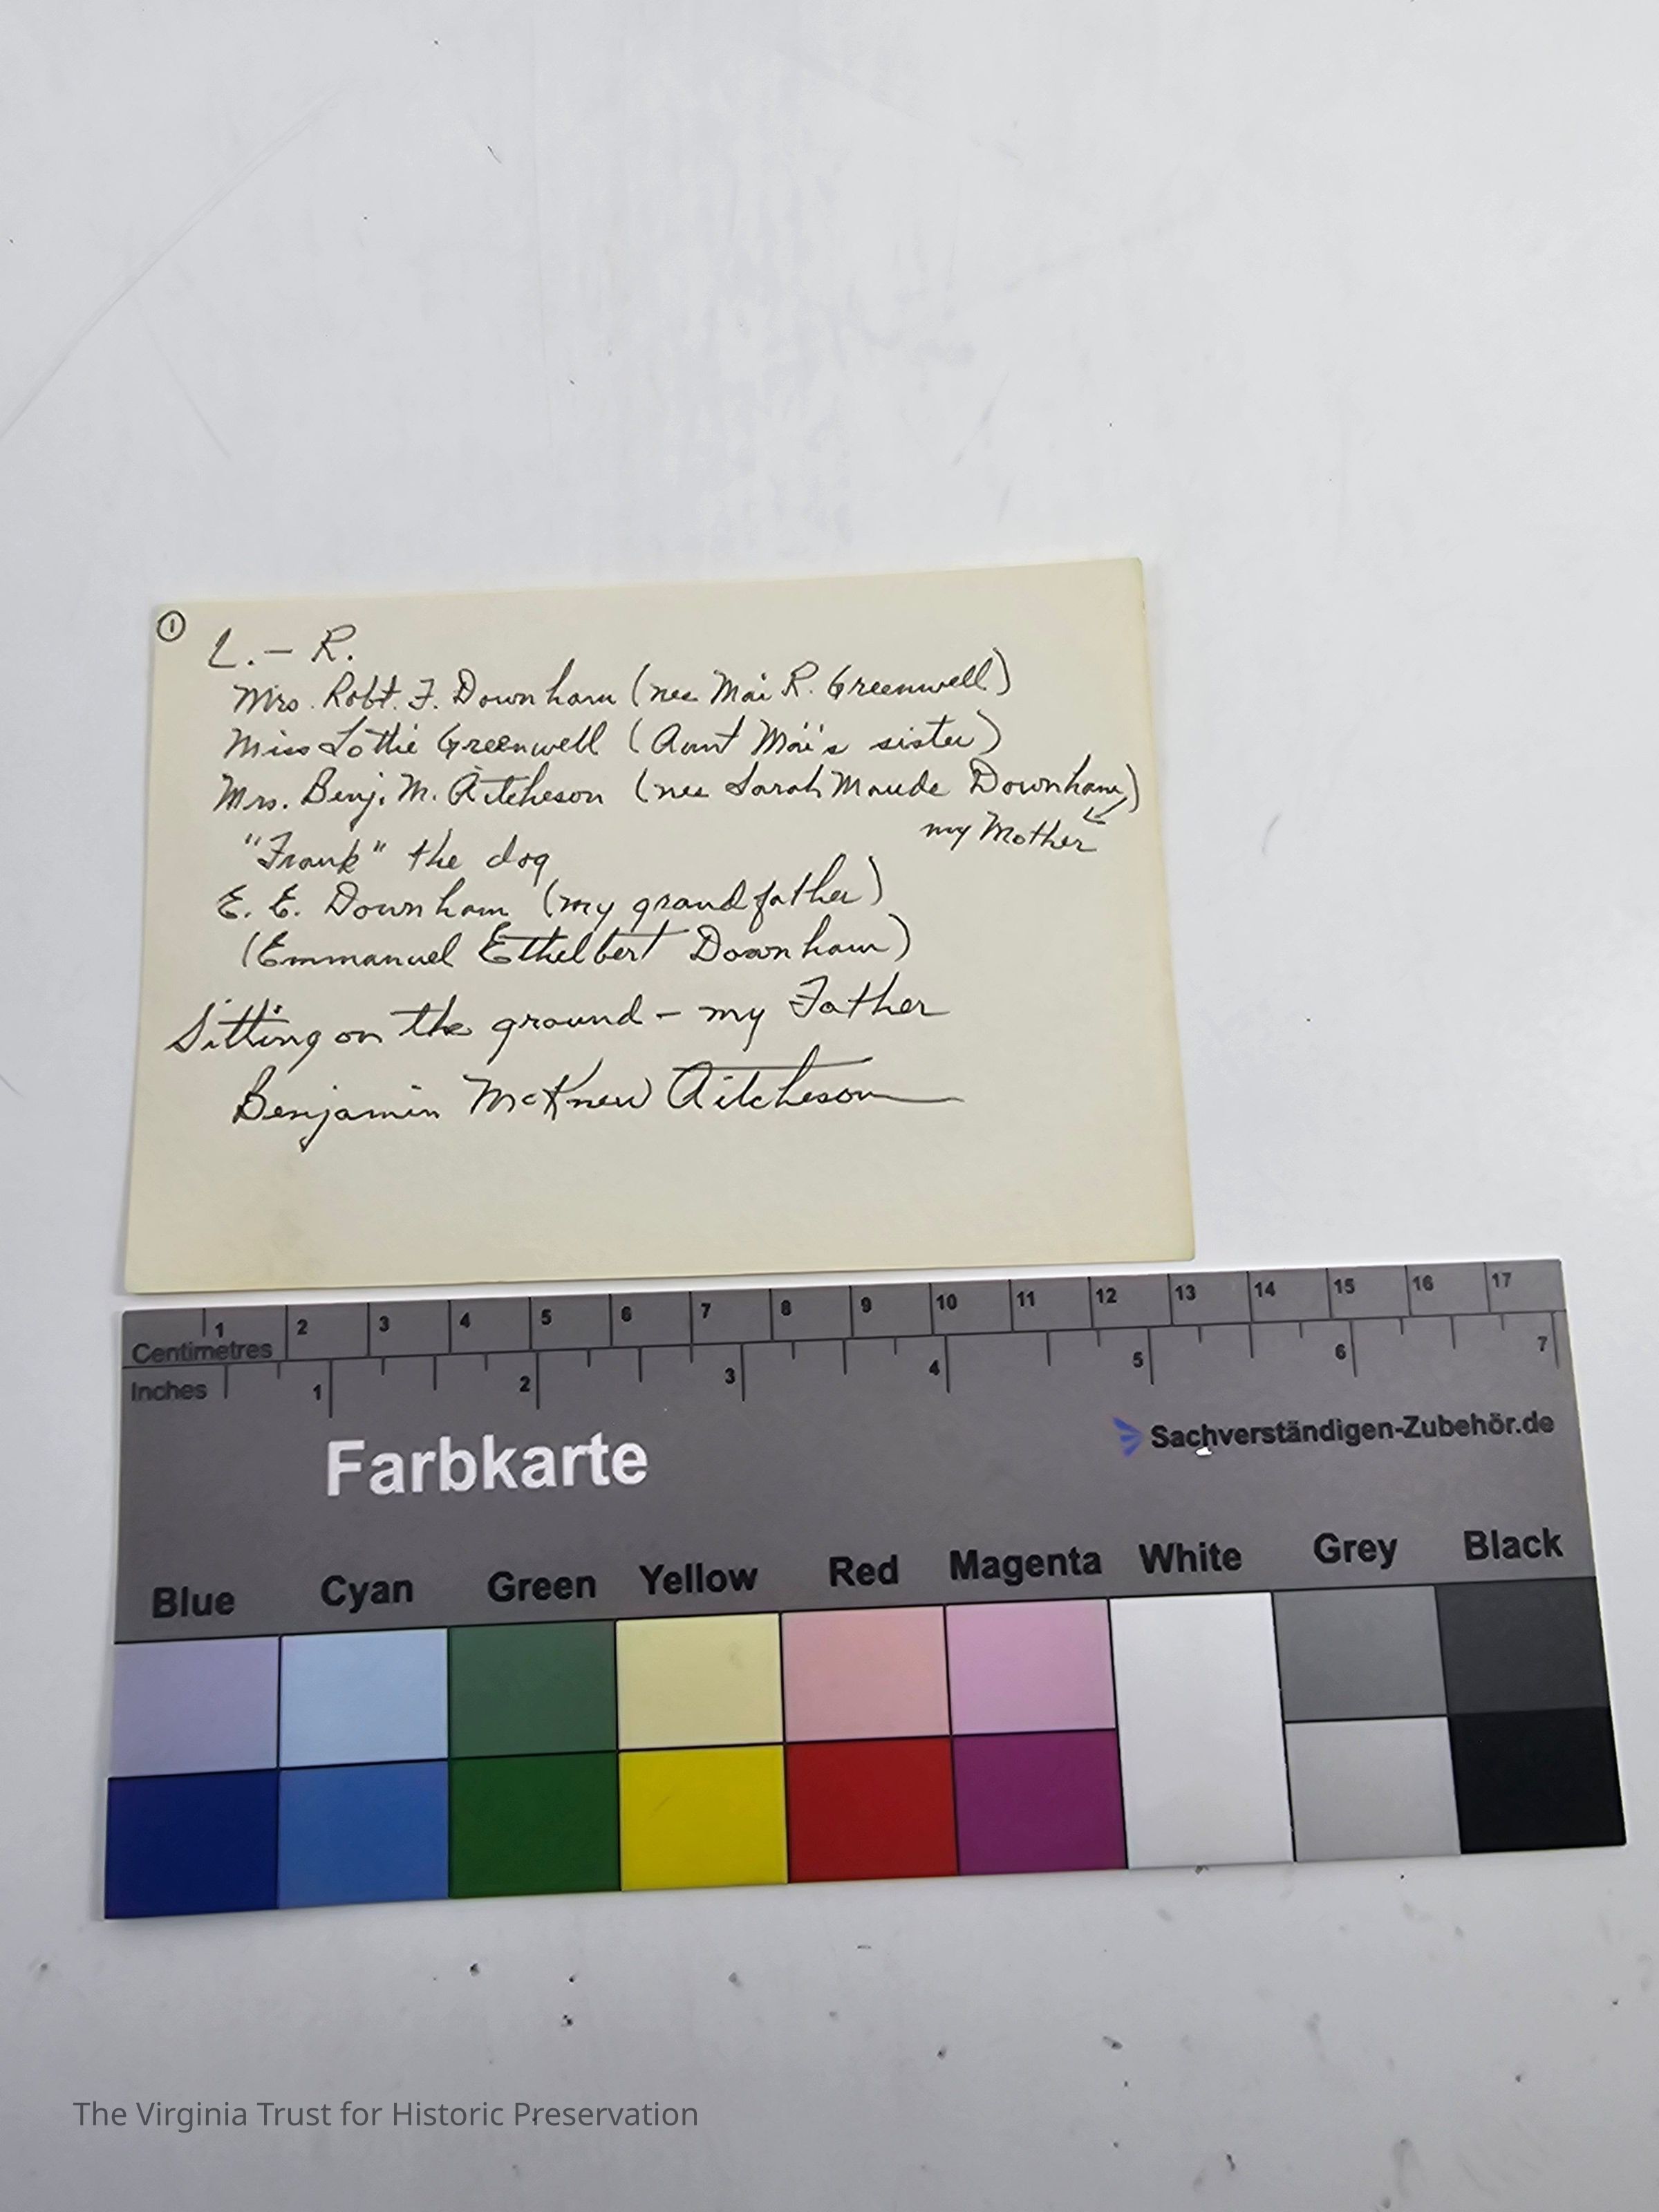 ①
L. – R.
Mrs. Robt. F. Downham (nee Mai R. Greenwell)
Miss Lottie Greenwell (Aunt Mai's sister)
Mrs. Benj. M. Aitcheson (nee Sarah Maude Downham)
my Mother
"Frank" the dog
E. E. Downham (my grandfather)
(Emmanuel Ethelbert Downham)
Sitting on the ground – my Father
Benjamin McKnew Aitcheson
1 2 3 4 5 6 7 8 9 10 11 12 13 14 15 16 17
Centimetres
Inches 1 2 3 4 5 6 7
Farbkarte
Sachverständigen-Zubehör.de
Blue Cyan Green Yellow Red Magenta White Grey Black
The Virginia Trust for Historic Preservation